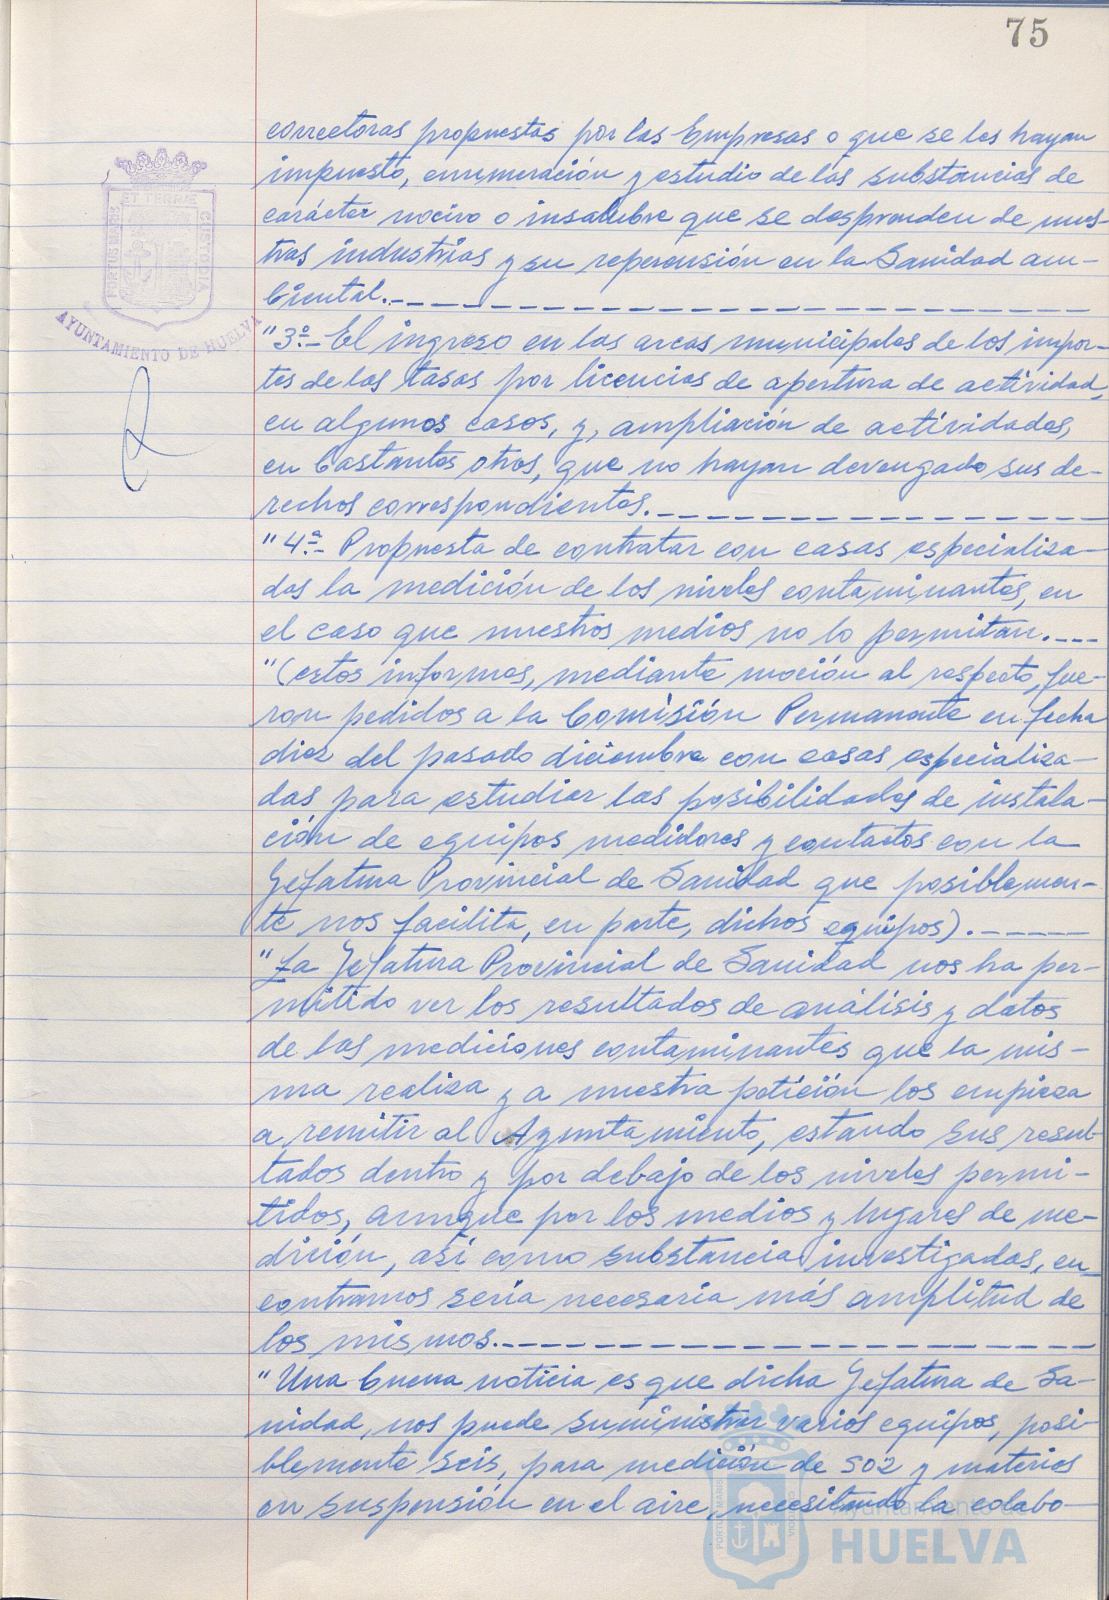 75
correctoras propuestas por las Empresas o que se les hayan
impuesto, enumeración y estudio de las substancias de
carácter nocivo o insalubre que se desprenden de nues-
tras industrias y su repercusión en la Sanidad am-
biental.-
"3º.- El ingreso en las arcas municipales de los impor-
tes de las tasas por licencias de apertura de actividad,
en algunos casos, y, ampliación de actividades,
en bastantes otros, que no hayan devengado sus de-
rechos correspondientes.-
"4ª.- Propuesta de contratar con casas especializa-
das la medición de los niveles contaminantes, en
el caso que nuestros medios no lo permitan.-
"(estos informes, mediante moción al respecto, fue-
ron pedidos a la Comisión Permanente en fecha
diez del pasado diciembre con casas especializa-
das para estudiar las posibilidades de instala-
ción de equipos medidores y contactos con la
Jefatura Provincial de Sanidad que posiblemen-
te nos facilita, en parte, dichos equipos).-
"La Jefatura Provincial de Sanidad nos ha per-
mitido ver los resultados de análisis y datos
de las mediciones contaminantes que la mis-
ma realiza y a nuestra petición los empieza
a remitir al Ayuntamiento, estando sus resul-
tados dentro y por debajo de los niveles permi-
tidos, aunque por los medios y lugares de me-
dición, así como substancia investigadas, en-
contramos sería necesaria más amplitud de
los mismos.-
"Una buena noticia es que dicha Jefatura de Sa-
nidad, nos puede suministrar varios equipos, posi-
blemente seis, para medición de SO2 y materias
en suspensión en el aire, necesitando la colabo-
PORTUS MARIS
ET TERRE
CUSTODIA
AYUNTAMIENTO DE HUELVA
Ayuntamiento de
HUELVA